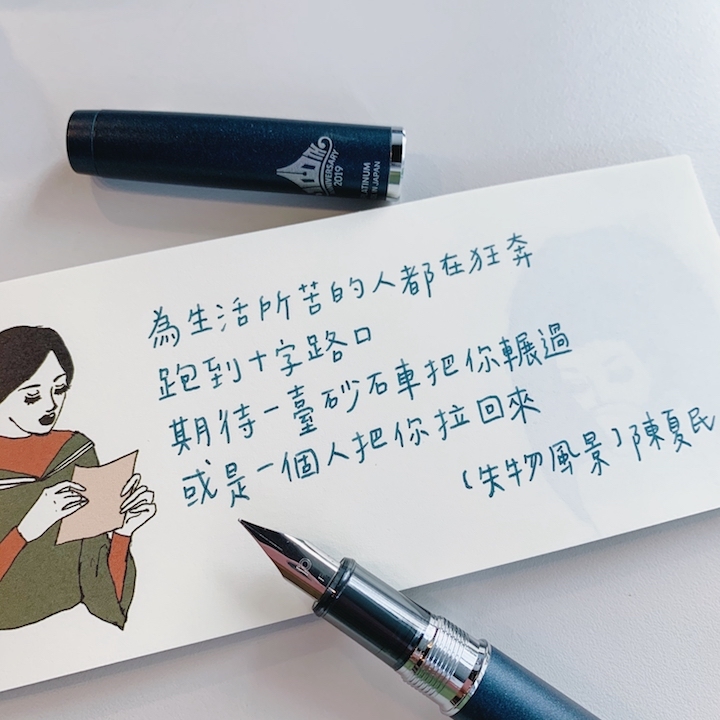 100TH
ANNIVERSARY
2019
PLATINUM
MADE IN JAPAN
為生活所苦的人都在狂奔
跑到十字路口
期待一臺砂石車把你輾過
或是一個人把你拉回來
〔失物風景〕陳夏民